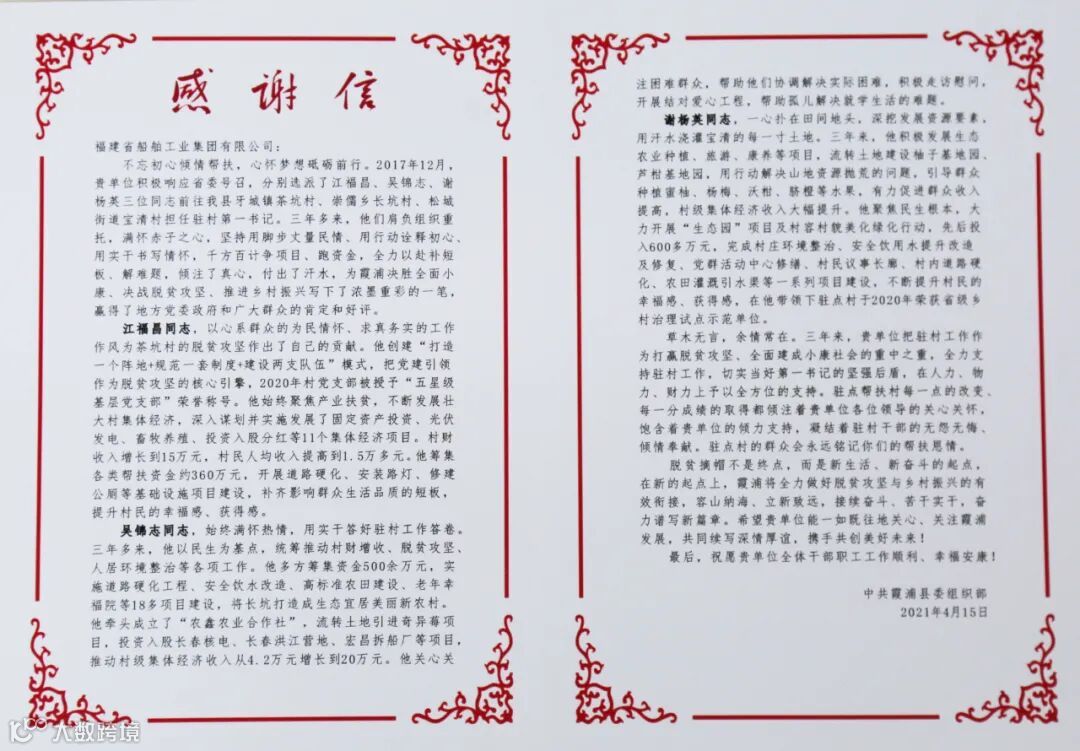 感谢信
福建省船舶工业集团有限公司：
不忘初心倾情帮扶，心怀梦想砥砺前行。2017年12月，
贵单位积极响应省委号召，分别选派了江福昌、吴锦志、谢
杨英三位同志前往我县牙城镇茶坑村、崇儒乡长坑村、松城
街道宝清村担任驻村第一书记。三年多来，他们肩负组织重
托，满怀赤子之心，坚持用脚步丈量民情、用行动诠释初心、
用实干书写情怀，千方百计争项目、跑资金，全力以赴补短
板、解难题，倾注了真心，付出了汗水，为霞浦决胜全面小
康、决战脱贫攻坚、推进乡村振兴写下了浓墨重彩的一笔，
赢得了地方党委政府和广大群众的肯定和好评。
江福昌同志，以心系群众的为民情怀、求真务实的工作
作风为茶坑村的脱贫攻坚作出了自己的贡献。他创建“打造
一个阵地+规范一套制度+建设两支队伍”模式，把党建引领
作为脱贫攻坚的核心引擎，2020年村党支部被授予“五星级
基层党支部”荣誉称号。他始终聚焦产业扶贫，不断发展壮
大村集体经济，深入谋划并实施发展了固定资产投资、光伏
发电、畜牧养殖、投资入股分红等11个集体经济项目。村财
收入增长到15万元，村民人均收入提高到1.5万多元。他筹集
各类帮扶资金约360万元，开展道路硬化、安装路灯、修建
公厕等基础设施项目建设，补齐影响群众生活品质的短板，
提升村民的幸福感、获得感。
吴锦志同志，始终满怀热情，用实干答好驻村工作答卷。
三年多来，他以民生为基点，统筹推动村财增收、脱贫攻坚、
人居环境整治等各项工作。他多方筹集资金500余万元，实
施道路硬化工程、安全饮水改造、高标准农田建设、老年幸
福院等18多项目建设，将长坑打造成生态宜居美丽新农村。
他牵头成立了“农鑫农业合作社”，流转土地引进奇异莓项
目，投资入股长春核电、长春洪江营地、宏昌拆船厂等项目，
推动村级集体经济收入从4.2万元增长到20万元。他关心关
注困难群众，帮助他们协调解决实际困难，积极走访慰问，
开展结对爱心工程，帮助孤儿解决就学生活的难题。
谢杨英同志，一心扑在田间地头，深挖发展资源要素，
用汗水浇灌宝清的每一寸土地。三年来，他积极发展生态
农业种植、旅游、康养等项目，流转土地建设柚子基地园、
芦柑基地园，用行动解决山地资源抛荒的问题，引导群众
种植蜜柚、杨梅、沃柑、脐橙等水果，有力促进群众收入
提高，村级集体经济收入大幅提升。他聚焦民生根本，大
力开展“生态园”项目及村容村貌美化绿化行动，先后投
入600多万元，完成村庄环境整治、安全饮用水提升改造
及修复、党群活动中心修缮、村民议事长廊、村内道路硬
化、农田灌溉引水渠等一系列项目建设，不断提升村民的
幸福感、获得感，在他带领下驻点村于2020年荣获省级乡
村治理试点示范单位。
草木无言，余情常在。三年来，贵单位把驻村工作作
为打赢脱贫攻坚、全面建成小康社会的重中之重，全力支
持驻村工作，切实当好第一书记的坚强后盾，在人力、物
力、财力上予以全方位的支持。驻点帮扶村每一点的改变、
每一分成绩的取得都倾注着贵单位各位领导的关心关怀，
饱含着贵单位的倾力支持，凝结着驻村干部的无怨无悔、
倾情奉献。驻点村的群众会永远铭记你们的帮扶恩情。
脱贫摘帽不是终点，而是新生活、新奋斗的起点，
在新的起点上，霞浦将全力做好脱贫攻坚与乡村振兴的有
效衔接，容山纳海、立新致远，接续奋斗、苦干实干，奋
力谱写新篇章。希望贵单位能一如既往地关心、关注霞浦
发展，共同续写深情厚谊，携手共创美好未来！
最后，祝愿贵单位全体干部职工工作顺利、幸福安康！
中共霞浦县委组织部
2021年4月15日
大数跨境